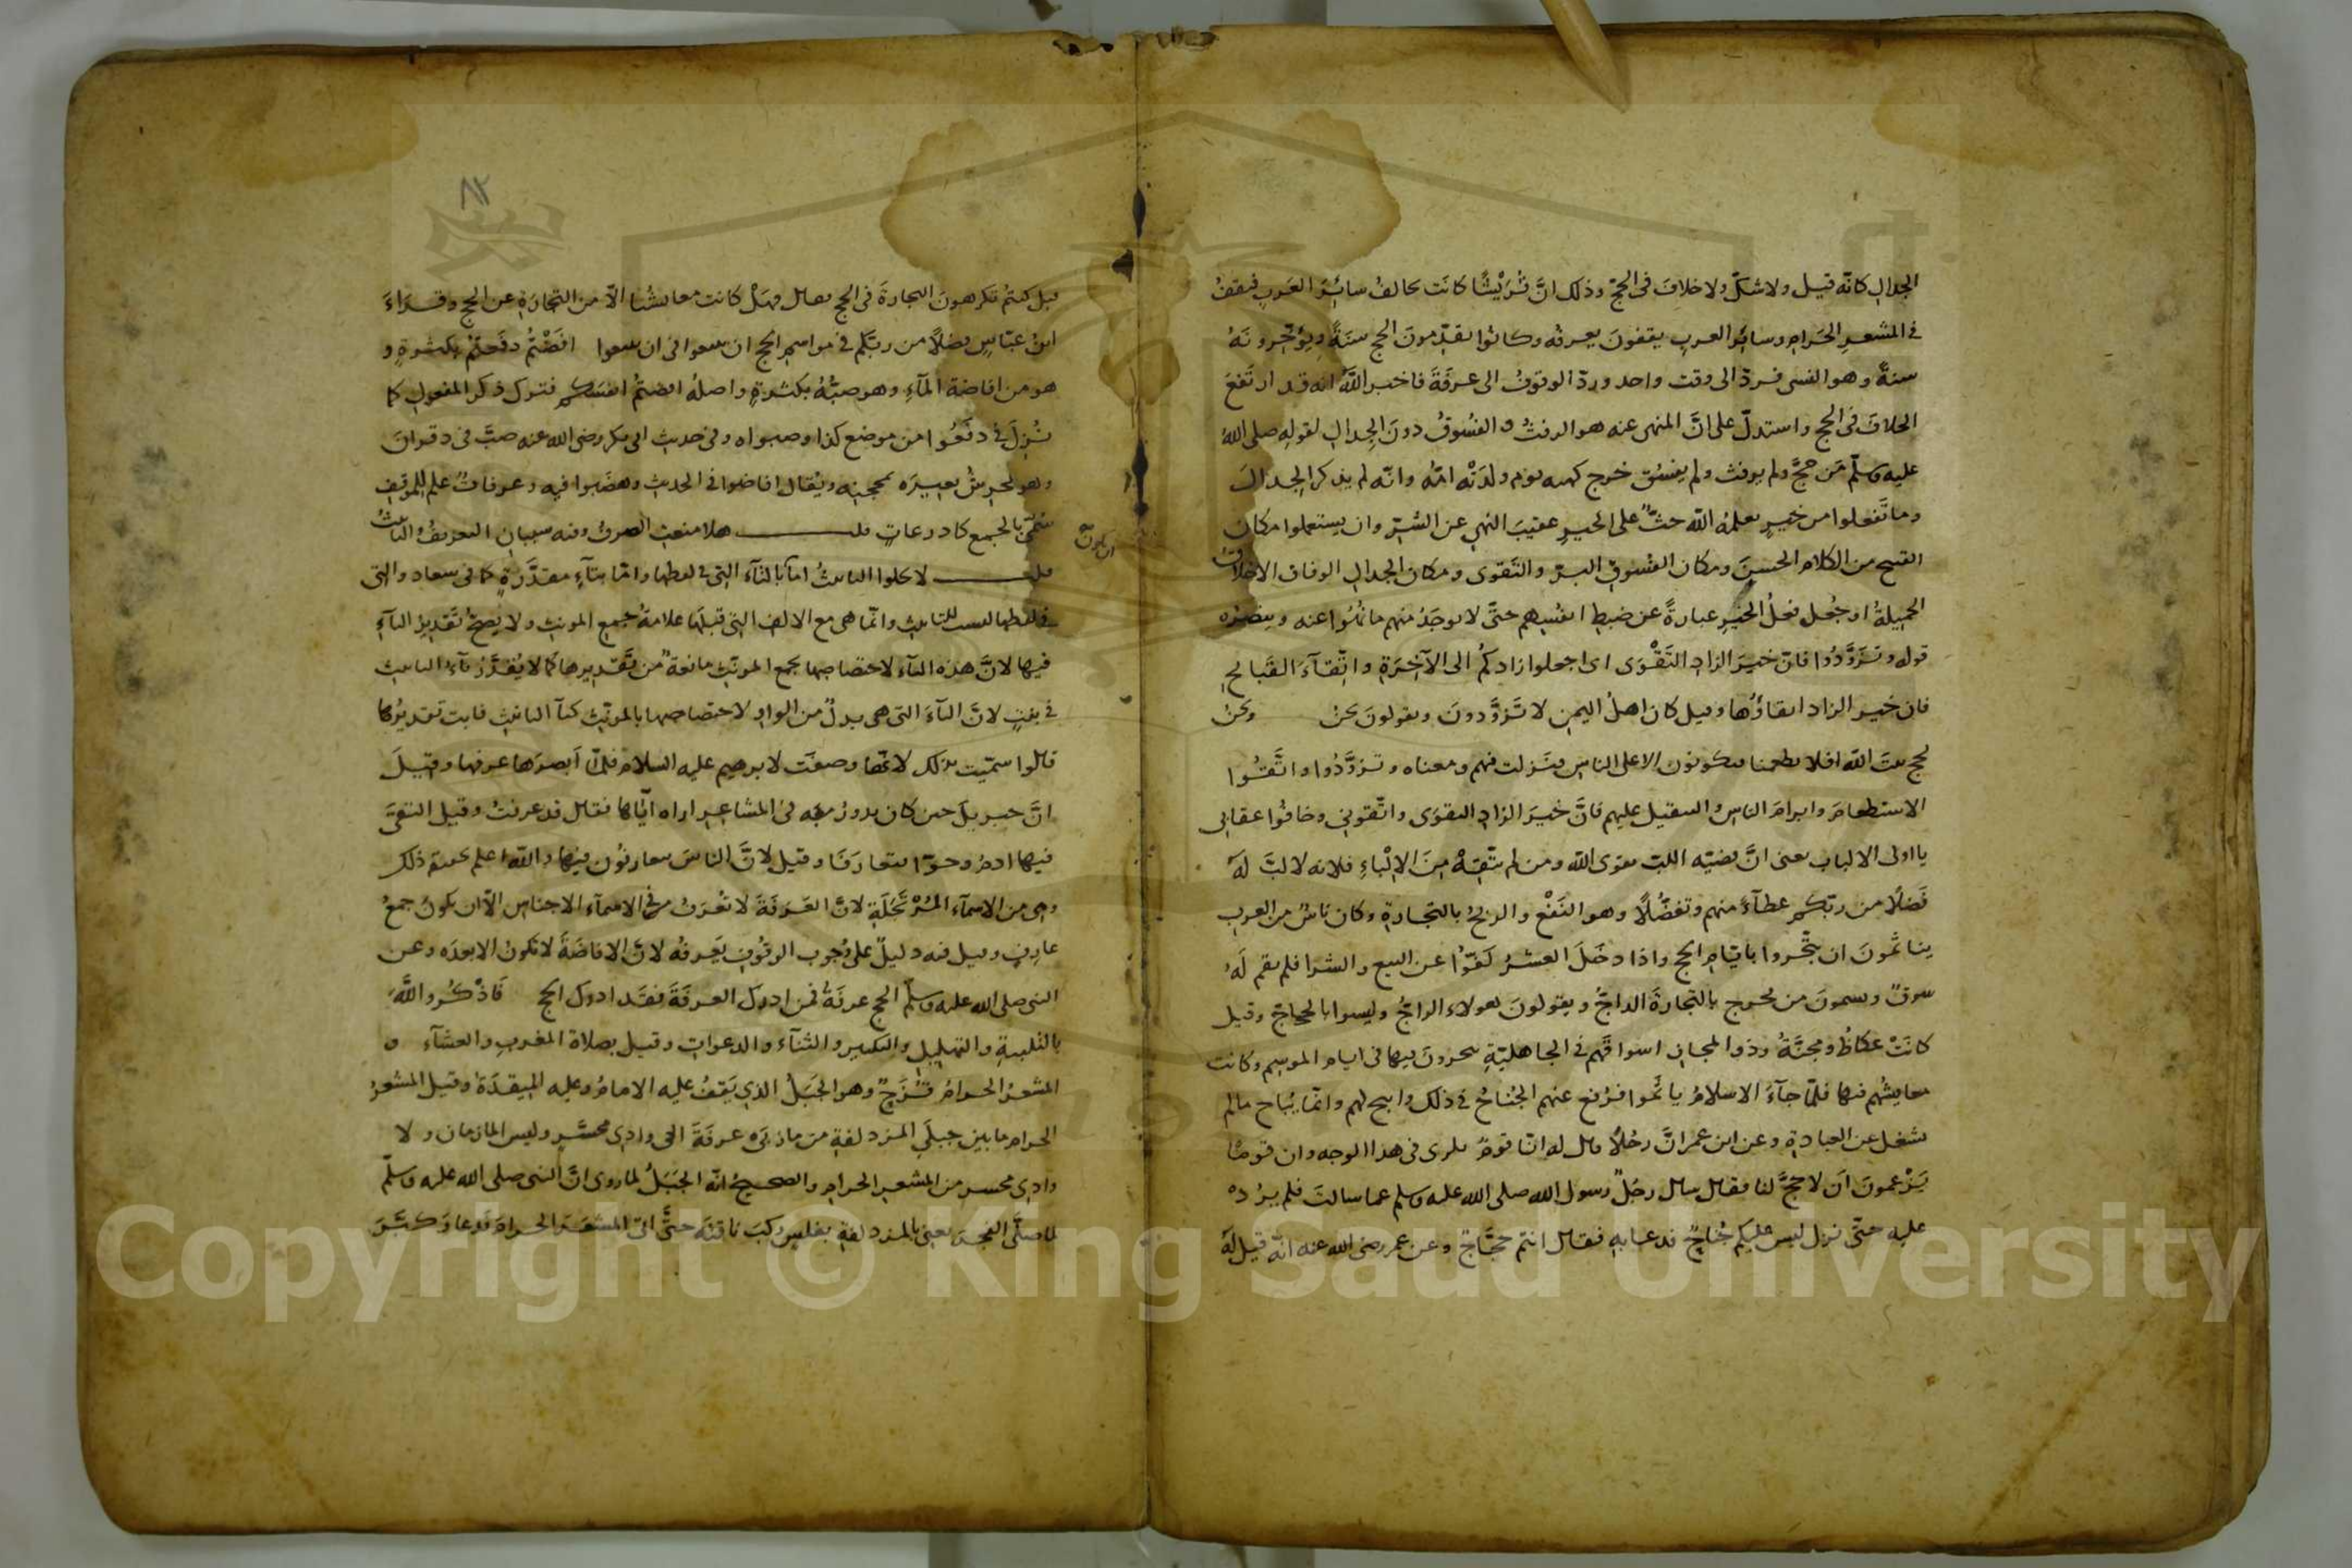 الجدال كانه قيل ولا شك ولا خلاف في الحج وذلك ان قريشا كانت تخالف سائر العرب فتقف
في المشعر الحرام وسائر العرب يقفون بعرفه وكانوا يقدمون الحج سنة ويؤخرونه
سنة وهو النسى فرد الى وقت واحد ورد الوقوف الى عرفة فاخبر الله انه قد ارتفع
الخلاف في الحج واستدل على ان المنهى عنه هو الرفث والفسوق دون الجدال لقوله صلى الله
عليه وسلم من حج ولم يرفث ولم يفسق خرج كهيه يوم ولدته امه وانه لم يذكر الجدال
وما تفعلوا من خير يعلمه الله حث على الخير عقيب النهى عن الشر وان يستعملوا مكان
القبيح من الكلام الحسن ومكان الفسوق البر والتقوى ومكان الجدال الوفاق والاخلاق
الجميلة او جعل فعل الخير عبارة عن ضبط انفسهم حتى لا يوجد منهم ما نهوا عنه وينصره
قوله وتزودوا فان خير الزاد التقوى اى اجعلوا زادكم الى الآخرة واتقآء القبائح
فان خير الزاد اتقاؤها وقيل كان اهل اليمن لا تزودون ويقولون نحن ونحن
نحج بيت الله افلا يطعمنا فيكونون الا على الناس فنزلت فيهم ومعناه وتزودوا واتقوا
الاستطعام وابرام الناس والتثقيل عليهم فان خير الزاد التقوى واتقونى وخافوا عقابى
يا اولى الالباب يعنى ان قضيه اللب تقوى الله ومن لم يتقه من الالباء فلانه لا لب له
فضلا من ربكم عطآء منهم وتفضلا وهو النفع والربح بالتجارة وكان ناس من العرب
يتاثمون ان يتجروا بايام الحج واذا دخل العشر كفوا عن البيع والشرا فلم يقم له
سوق ويسمون من يخرج بالتجارة الداج ويقولون هولاء الداج وليسوا بالحجاج وقيل
كانت عكاظ ومجنة وذو المجاز اسواقهم في الجاهلية يتجرون فيها في ايام الموسم وكانت
معايشهم فيها فلما جآء الاسلام ياثموا فرفع عنهم الجناح في ذلك وابيح لهم وانما يباح ما لم
يشغل عن العبادة وعن ابن عمر ان رجلا قال له انا قوم نكرى في هذا الوجه وان قوما
يزعمون ان لا حج لنا فقال سال رجل رسول الله صلى الله عليه وسلم عما سالت فلم يرد
عليه حتى نزل ليس عليكم جناح فدعا به فقال انتم حجاج وعن عمر رضى الله عنه انه قيل له
٨٢
هل كنتم تكرهون التجارة في الحج فقال وهل كانت معايشنا الا من التجارة عن الحج وقراءة
ابن عباس فضلا من ربكم في مواسم الحج ان تبتغوا في ان تبتغوا افضتم دفعتم بكثرة و
هو من افاضة المآء وهو صبه بكثرة واصله افضتم انفسكم فترك ذكر المفعول كما
ترك في دفعوا من موضع كذا وصبوا وفي حديث ابى بكر رضى الله عنه صب في دقران
وهو يخرش بعيره بمحجنه ويقال افاضوا في الحديث وهضبوا فيه وعرفات علم للموقف
سمى بالجمع كاذرعات قلت هلا منعت الصرف وفيه سببان التعريف والتانيث
ان يكون
قلت لا يخلوا التانيث اما بالتآء التى في لفظها واما بتآء مقدرة كما في سعاد والتى
في لفظها ليست للتانيث وانما هى مع الالف التى قبلها علامة جمع المونث ولا يصح تقدير التآء
فيها لان هذه التآء لاختصاصها بجمع المونث مانعة من تقديرها كما لا يقدر تآء التانيث
في بنت لان التآء التى هى بدل من الواو لاختصاصها بالمونث كتآ التانيث فابت تقديرها
قالوا سميت بذلك لانها وصفت لابرهيم عليه السلام فلما ابصرها عرفها وقيل
ان جبريل حين كان يدور به في المشاعر اراه اياها فقال قد عرفت وقيل التقى
فيها ادم وحوا فتعارفا وقيل لان الناس يتعارفون فيها والله اعلم بحقيقة ذلك
وهى من الاسمآء المرتجلة لان العرفة لا تعرف في الاسمآء الاجناس الا ان يكون جمع
عارف وقيل فيه دليل على وجوب الوقوف بعرفة لان الافاضة لا تكون الا بعده وعن
النبى صلى الله عليه وسلم الحج عرفة فمن ادرك العرفة فقد ادرك الحج فاذكروا الله
بالتلبية والتهليل والتكبير والثنآء والدعوات وقيل بصلاة المغرب والعشآء و
المشعر الحرام قزح وهو الجبل الذى يقف عليه الامام وعليه الميقدة وقيل المشعر
الحرام ما بين جبلى المزدلفة من مازمى عرفة الى وادى محسر وليس المازمان ولا
وادى محسر من المشعر الحرام والصحيح انه الجبل لما روى ان النبى صلى الله عليه وسلم
لما صلى الفجر يعنى بالمزدلفة بغلس ركب ناقته حتى اتى المشعر الحرام فدعا وكبر
Copyright © King Saud University